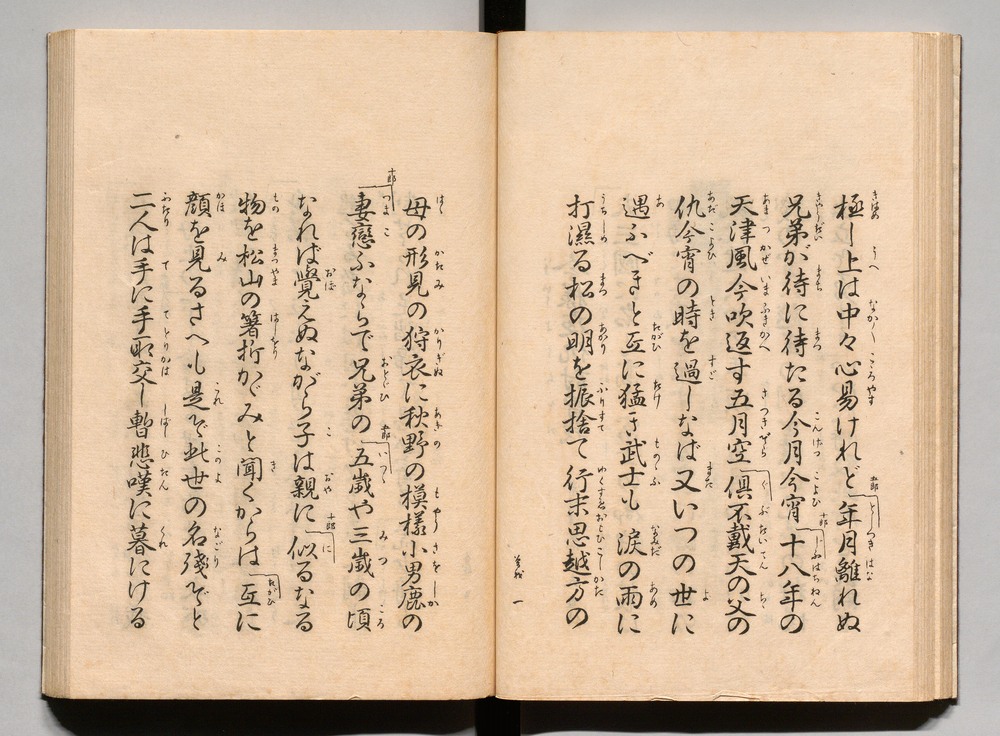 極し上は中々心易けれど 年月離れぬ
兄弟が待に待たる今月今宵 十八年の
天津風今吹返す五月空 倶不戴天の父の
仇今宵の時を過しなば又いつの世に
遇ふべきと互に猛き武士も 涙の雨に
打濕る松の明を振捨て 行末思越方の
一
母の形見の狩衣に秋野の模様小男鹿の
妻戀ふならで兄弟の 五歳や三歳の頃
なれば覺えぬながら子は親に 似るなる
物を松山の箸折かゞみと聞くからは 互に
顔を見るさへも是ぞ此世の名殘ぞと
二人は手に手取交し暫悲嘆に暮にける